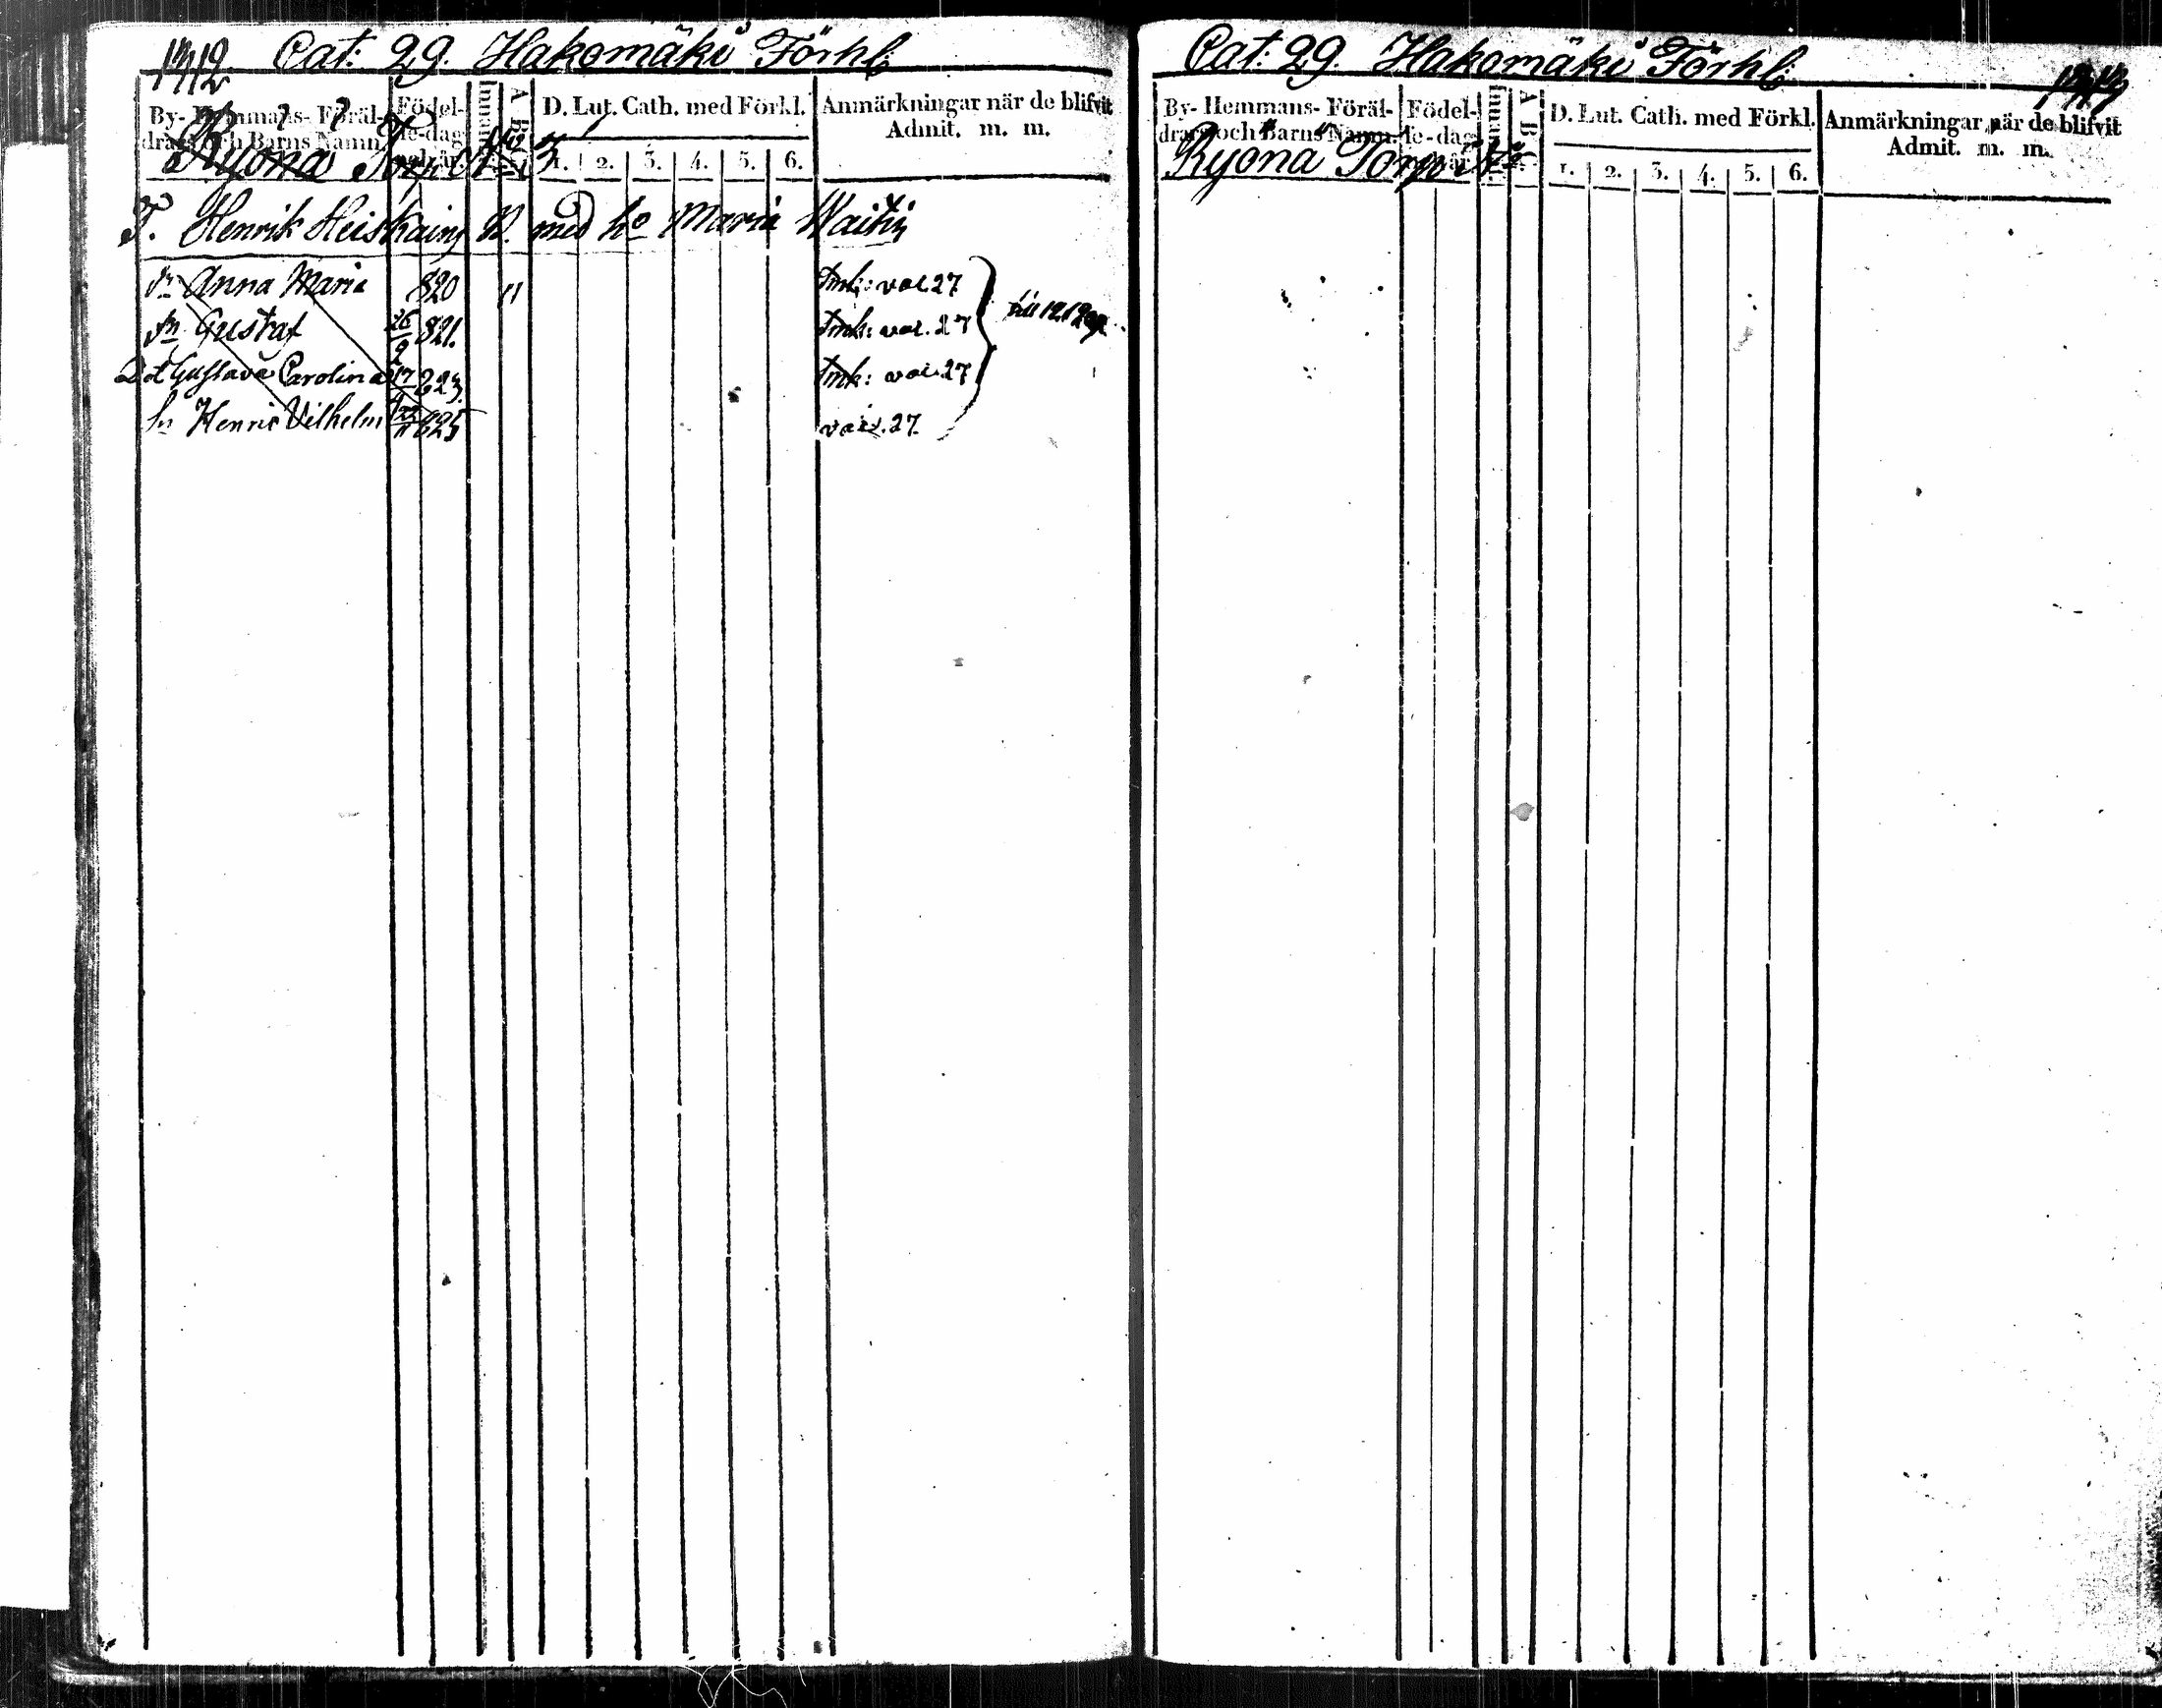 1712 Cat: 29. Hakomäki Förhl
By- Hemmans- Föräl-
drars och Barns Namn.
Födel-
se-dag
och år.
A B C
D. Lut. Cath. med Förkl.
1. 2. 3. 4. 5. 6.
Anmärkningar när de blifvit
Admit. m. m.
Ryona Torp N:o 3
T. Henrik Heiskain med ho Maria Waitin
Anna Maria 820 11 vac 27
Sn Gustaf 26/2 821. vac. 27
Dot Gustava Carolina 17 823. vac. 27
Sn Henric Vilhelm 22/11 825 vac. 27.
Cat: 29. Hakomäki Förhl
By- Hemmans- Föräl-
drars och Barns Namn.
Födel-
se-dag
och år.
A B C
D. Lut. Cath. med Förkl.
1. 2. 3. 4. 5. 6.
Anmärkningar när de blifvit
Admit. m. m.
Ryona Torp N:o